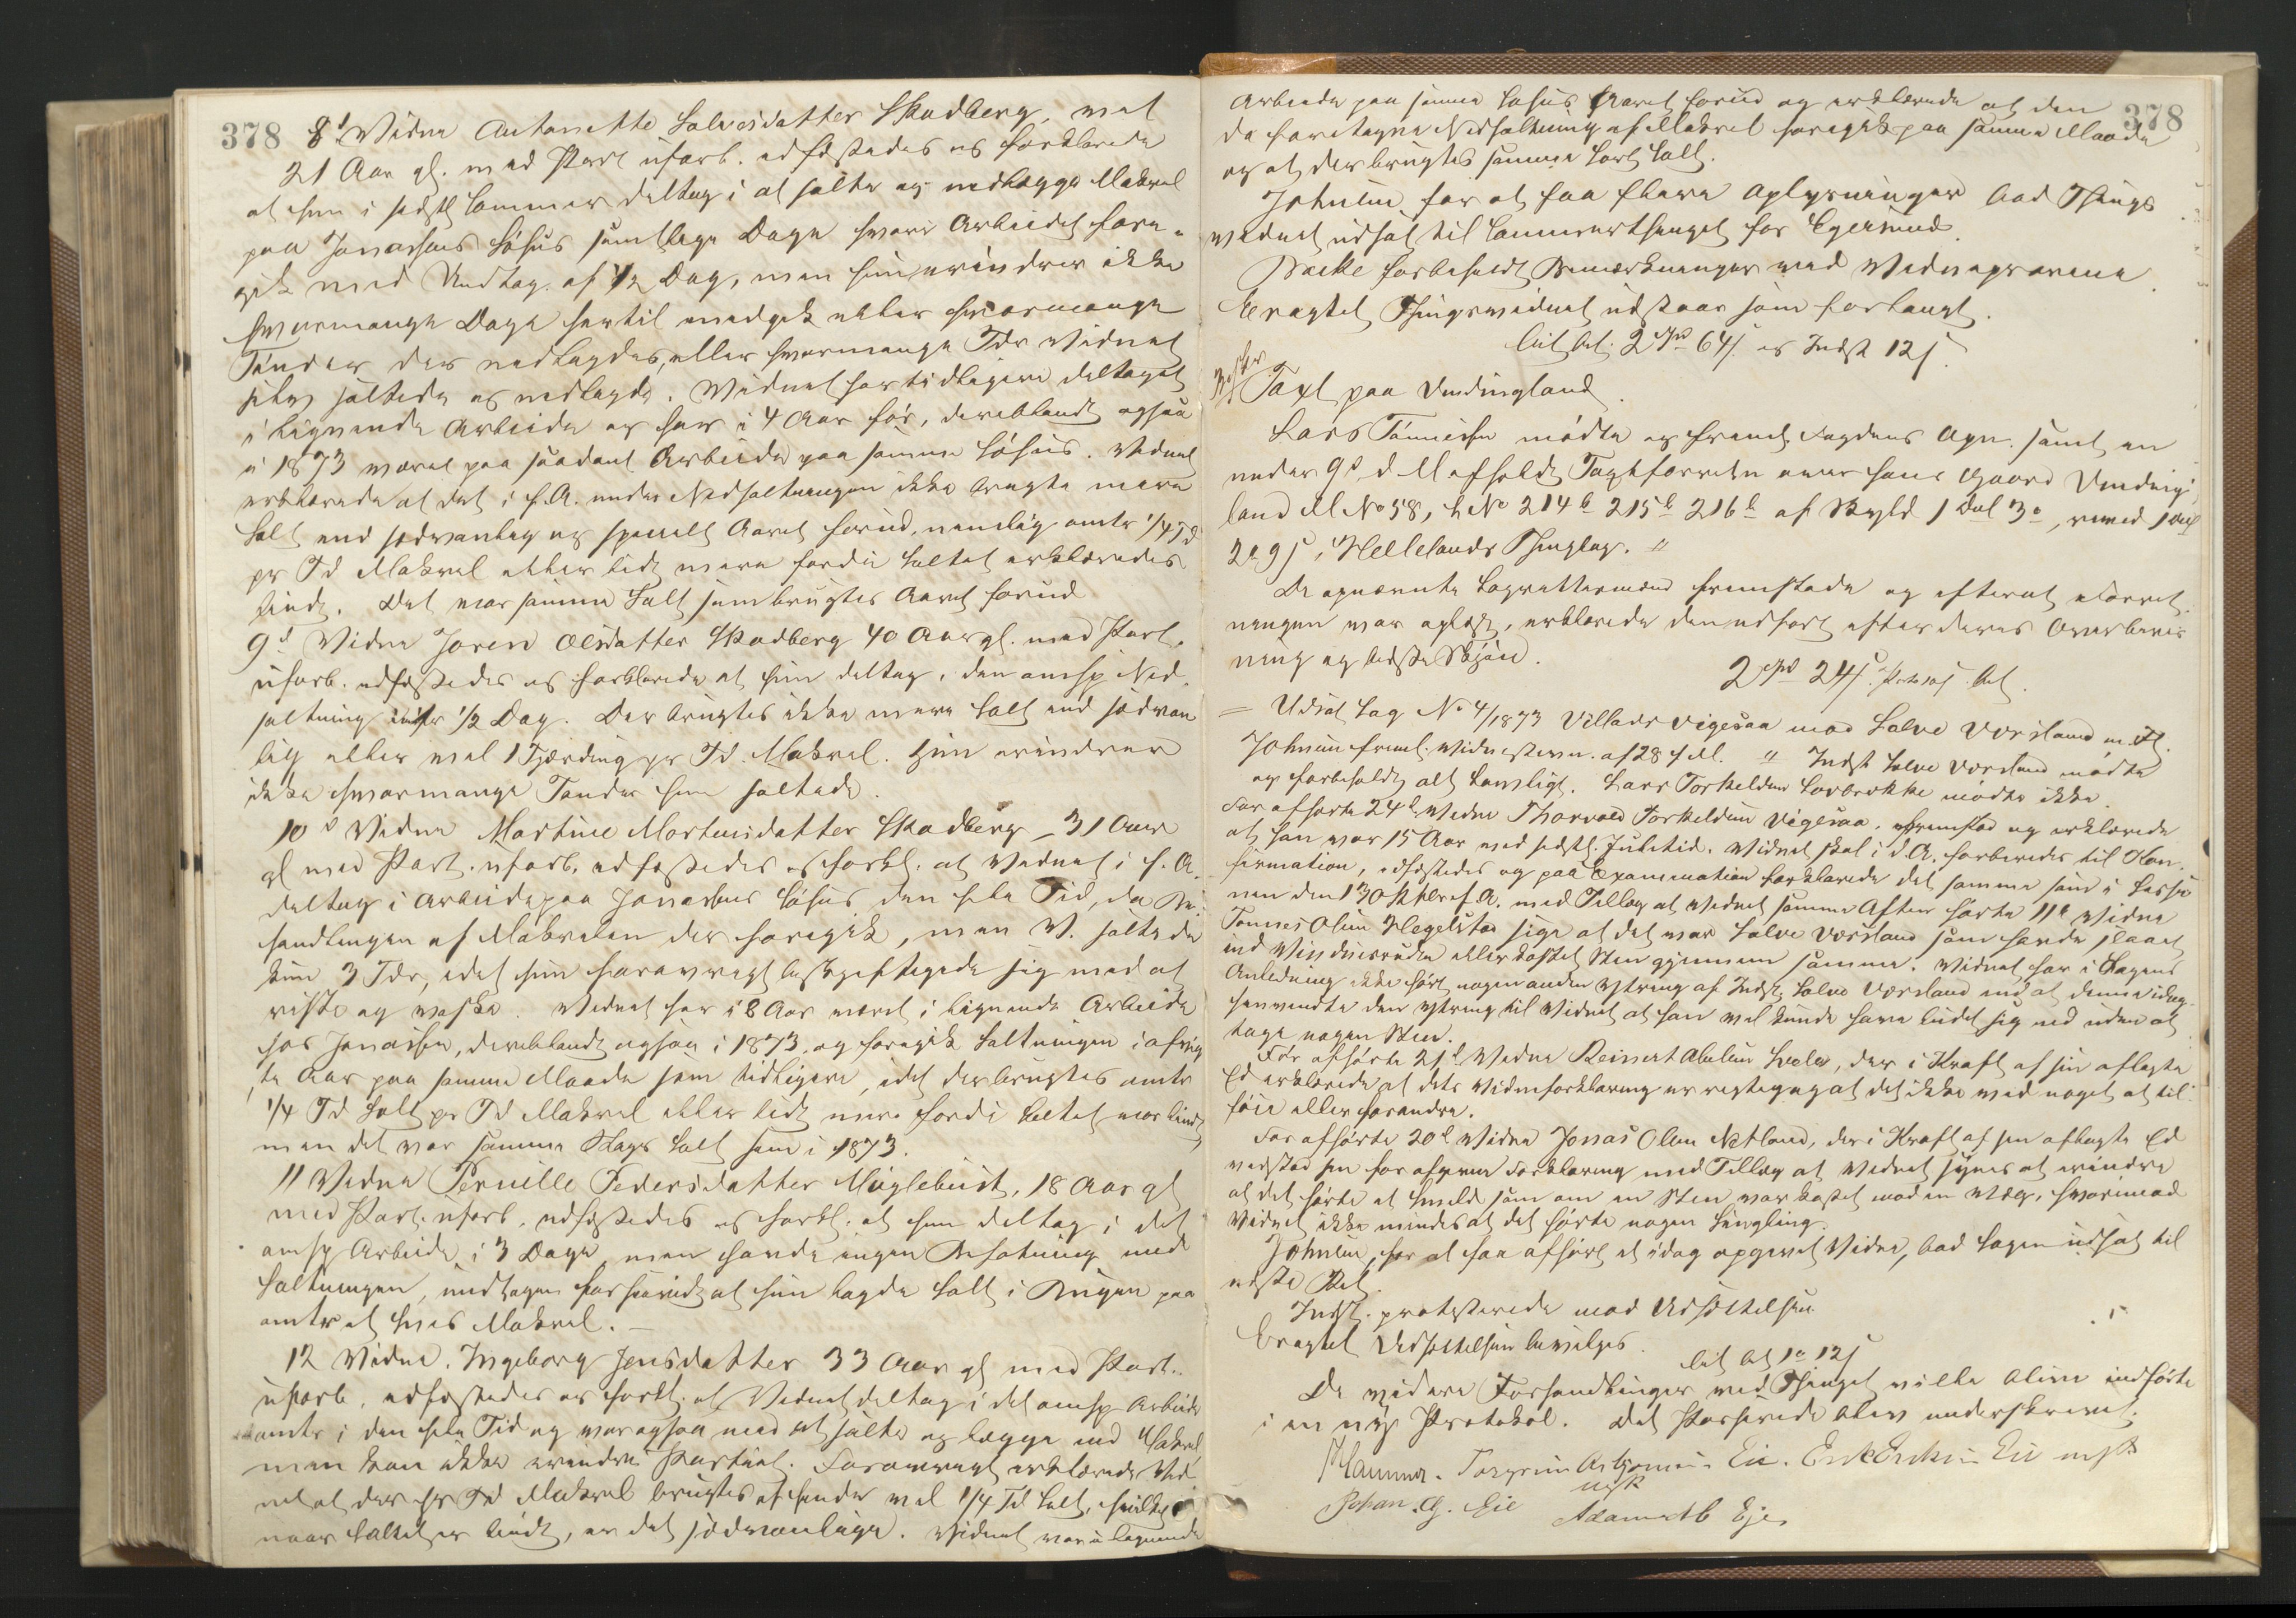 378
8d Vidne Antonette Salvesdatter Skadberg, vel
21 Aar gl. med Part. uforb. edfæstedes og forklarede
at hun i sidste Sommer deltog i at salte og nedlægge Makrel
paa Jonassens Søhus samtlige Dage hvori Arbeidet fore-
gik med Undtag. af 1/2 Dag, men hun erindrer ikke
hvormange Dage hertil medgik eller hvormange
Tønder der nedlagdes, eller hvormange Tdr Vidnet
selv saltede og nedlagde. Vidnet har tidligere deltaget
i lignende Arbeide og har i 4 Aar før, deriblandt ogsaa
i 1873 været paa saadant Arbeide paa samme Søhus. Vidnet
erklærede at det i f. A. under Nedsaltningen ikke brugte mere
Salt end sedvanlig og specielt Aaret forud, nemlig omtr 1/4 Td
pr Td Makrel eller lidt mere fordi Saltet erklæredes
lindt. Det var samme Salt som brugtes Aaret forud
9d Vidne Joren Olsdatter Skadberg 40 Aar gl. med Part.
uforb. edfæstedes og forklarede at hun deltog i den omsp Ned-
saltning 1/2 Dag. Der brugtes ikke mere Salt end sædvan
lig eller vel 1 Fjerding pr Td. Makrel. Hun erindrer
ikke hvormange Tønder hun saltede.
10d Vidne Martine Mortensdatter Skadberg 31 Aar
gl med Part. uforb. edfæstedes og forkl. at Vidnet i f. A.
deltog i Arbeide paa Jonassens Søhus den hele Tid, da Be-
handlingen af Makrelen der foregik, men V. saltede
kun 3 Tdr, idet hun forøvrigt beskjæftigede sig med at
riste og vaske. Vidnet har i 8 Aar været i lignende Arbeide
hos Jonassen, deriblandt ogsaa i 1873, og foregik Saltningen i afvig
te Aar paa samme Maade som tidligere, idet der brugtes omtr
1/4 Td Salt pr Td Makrel eller lidt mere fordi Saltet var lindt,
men det var samme Slags Salt som i 1873.
11 Vidne Pernille Pedersdatter Myglebust, 18 Aar gl
med Part. uforb. edfæstedes og forkl. at hun deltog i det
omsp Arbeide i 3 Dage men havde ingen Befatning med
Saltningen, undtagen forsaavidt at hun lagde Salt i Bugen paa
omtr et hvis Makrel. —
12 Vidne. Ingeborg Jensdatter 33 Aar gl med Part.
uforb. edfæstedes og forkl. at Vidnet deltog i det omsp Arbeide
omtr i den hele Tid og var ogsaa med at salte og lægge ned Makrel
men kan ikke erindre Partiet. Forøvrigt erklærede Vid
net at der pr Td Makrel brugtes af hende vel 1/4 Td Salt, hvilket
naar Saltet er lindt, er det sædvanlige. Vidnet var i lignende
378
Arbeide paa samme Søhus Aaret forud og erklærede at den
da foretagne Nedsaltning af Makrel foregik paa samme Maade
og at der brugtes samme Sort Salt.
Johnsen for at faa flere Oplysninger bad Things
vidnet udsat til Sommerthinget for Egersund
forbeholdt Bemærkninger ved Vidneprovene.
Eragtet Thingsvidnet udstaar som forlangt.
2 Spd 64 s og Indst 12 s
Taxt paa Omdingland
Lars Tønnesen mødte og freml Fogdens Opn. samt en
under 9d d M afholdt Taxtforretn over hans Gaard Omding
land M No 58, L No 214b 215b 216b af Skyld 1 Dal 3o, rived 1 Dal
2o 9 s, Hellelands Thinglag. "
De opnævnte Lagrettesmænd fremstode og efterat Forret-
ningen var oplæst, erklærede den udført efter deres Overbevis
ning og bedste Skjøn.
2 Spd 24 s
= Udsat Sag No 4/1873 Villads Vigesaa mod Salve Vorsland m. Fl.
Johnsen freml. Vidnestevn. af 28 f. M. " Indst Salve Vorsland mødte
og forbeholdt alt Lovligt. Lars Torkeldsen Lavbrekke mødte ikke.
Før afhørte 24d Vidne Thorvald Torkeldsen Vigesaa, fremstod og erklærede
at han var 15 Aar ved sidstl. Juletid. Vidnet skal i d. A. forberedes til Kon-
firmation, edfæstedes og paa Examination forklarede det samme som i Sessio
nen den 13 Oktbr f. A. med Tillæg at Vidnet samme Aften hørte 11te Vidne
Tønnes Olsen Hegelstad sige at det var Salve Vorsland som havde slaaet
ind Vinduesruden eller kastet Sten gjennem samme. Vidnet har i Sagens
Anledning ikke hørt nogen anden Ytring af Indst. Salve Vorsland end at denne idag
henvendte den Ytring til Vidnet at han vel kunde have budet sig ned uden at
tage nogen Sten.
Før afhørte 21d Vidne Reinert Abelsen Hæle, der i Kraft af sin aflagte
Ed erklærede at dets Vidneforklaring er rigtig og at det ikke ved noget at til-
føie eller forandre.
Før afhørte 20d Vidne Jonas Olsen Netland, der i Kraft af sin aflagte Ed
vedstod sin før afgivne Forklaring med Tillæg at Vidnet synes at erindre
at det hørte et Smeld som om en Sten var kastet mod en Væg, hvorimod
Vidnet ikke mindes at det hørte nogen Singling.
Johnsen, for at faa afhørt et idag opgivet Vidne, bad Sagen udsat til
næste Ret.
Indst. protesterede mod Udsættelsen
Eragtet Udsættelsen bevilges.
1o 12 s
De videre Forhandlinger ved Thinget ville blive indførte
i en ny Protokol. Det Passerede blev underskrevet.
Hammer. Torgrim Asbjørnsen Eie. Erik Eriksen Eie m p P
Johan. G. Eie Adam Eje